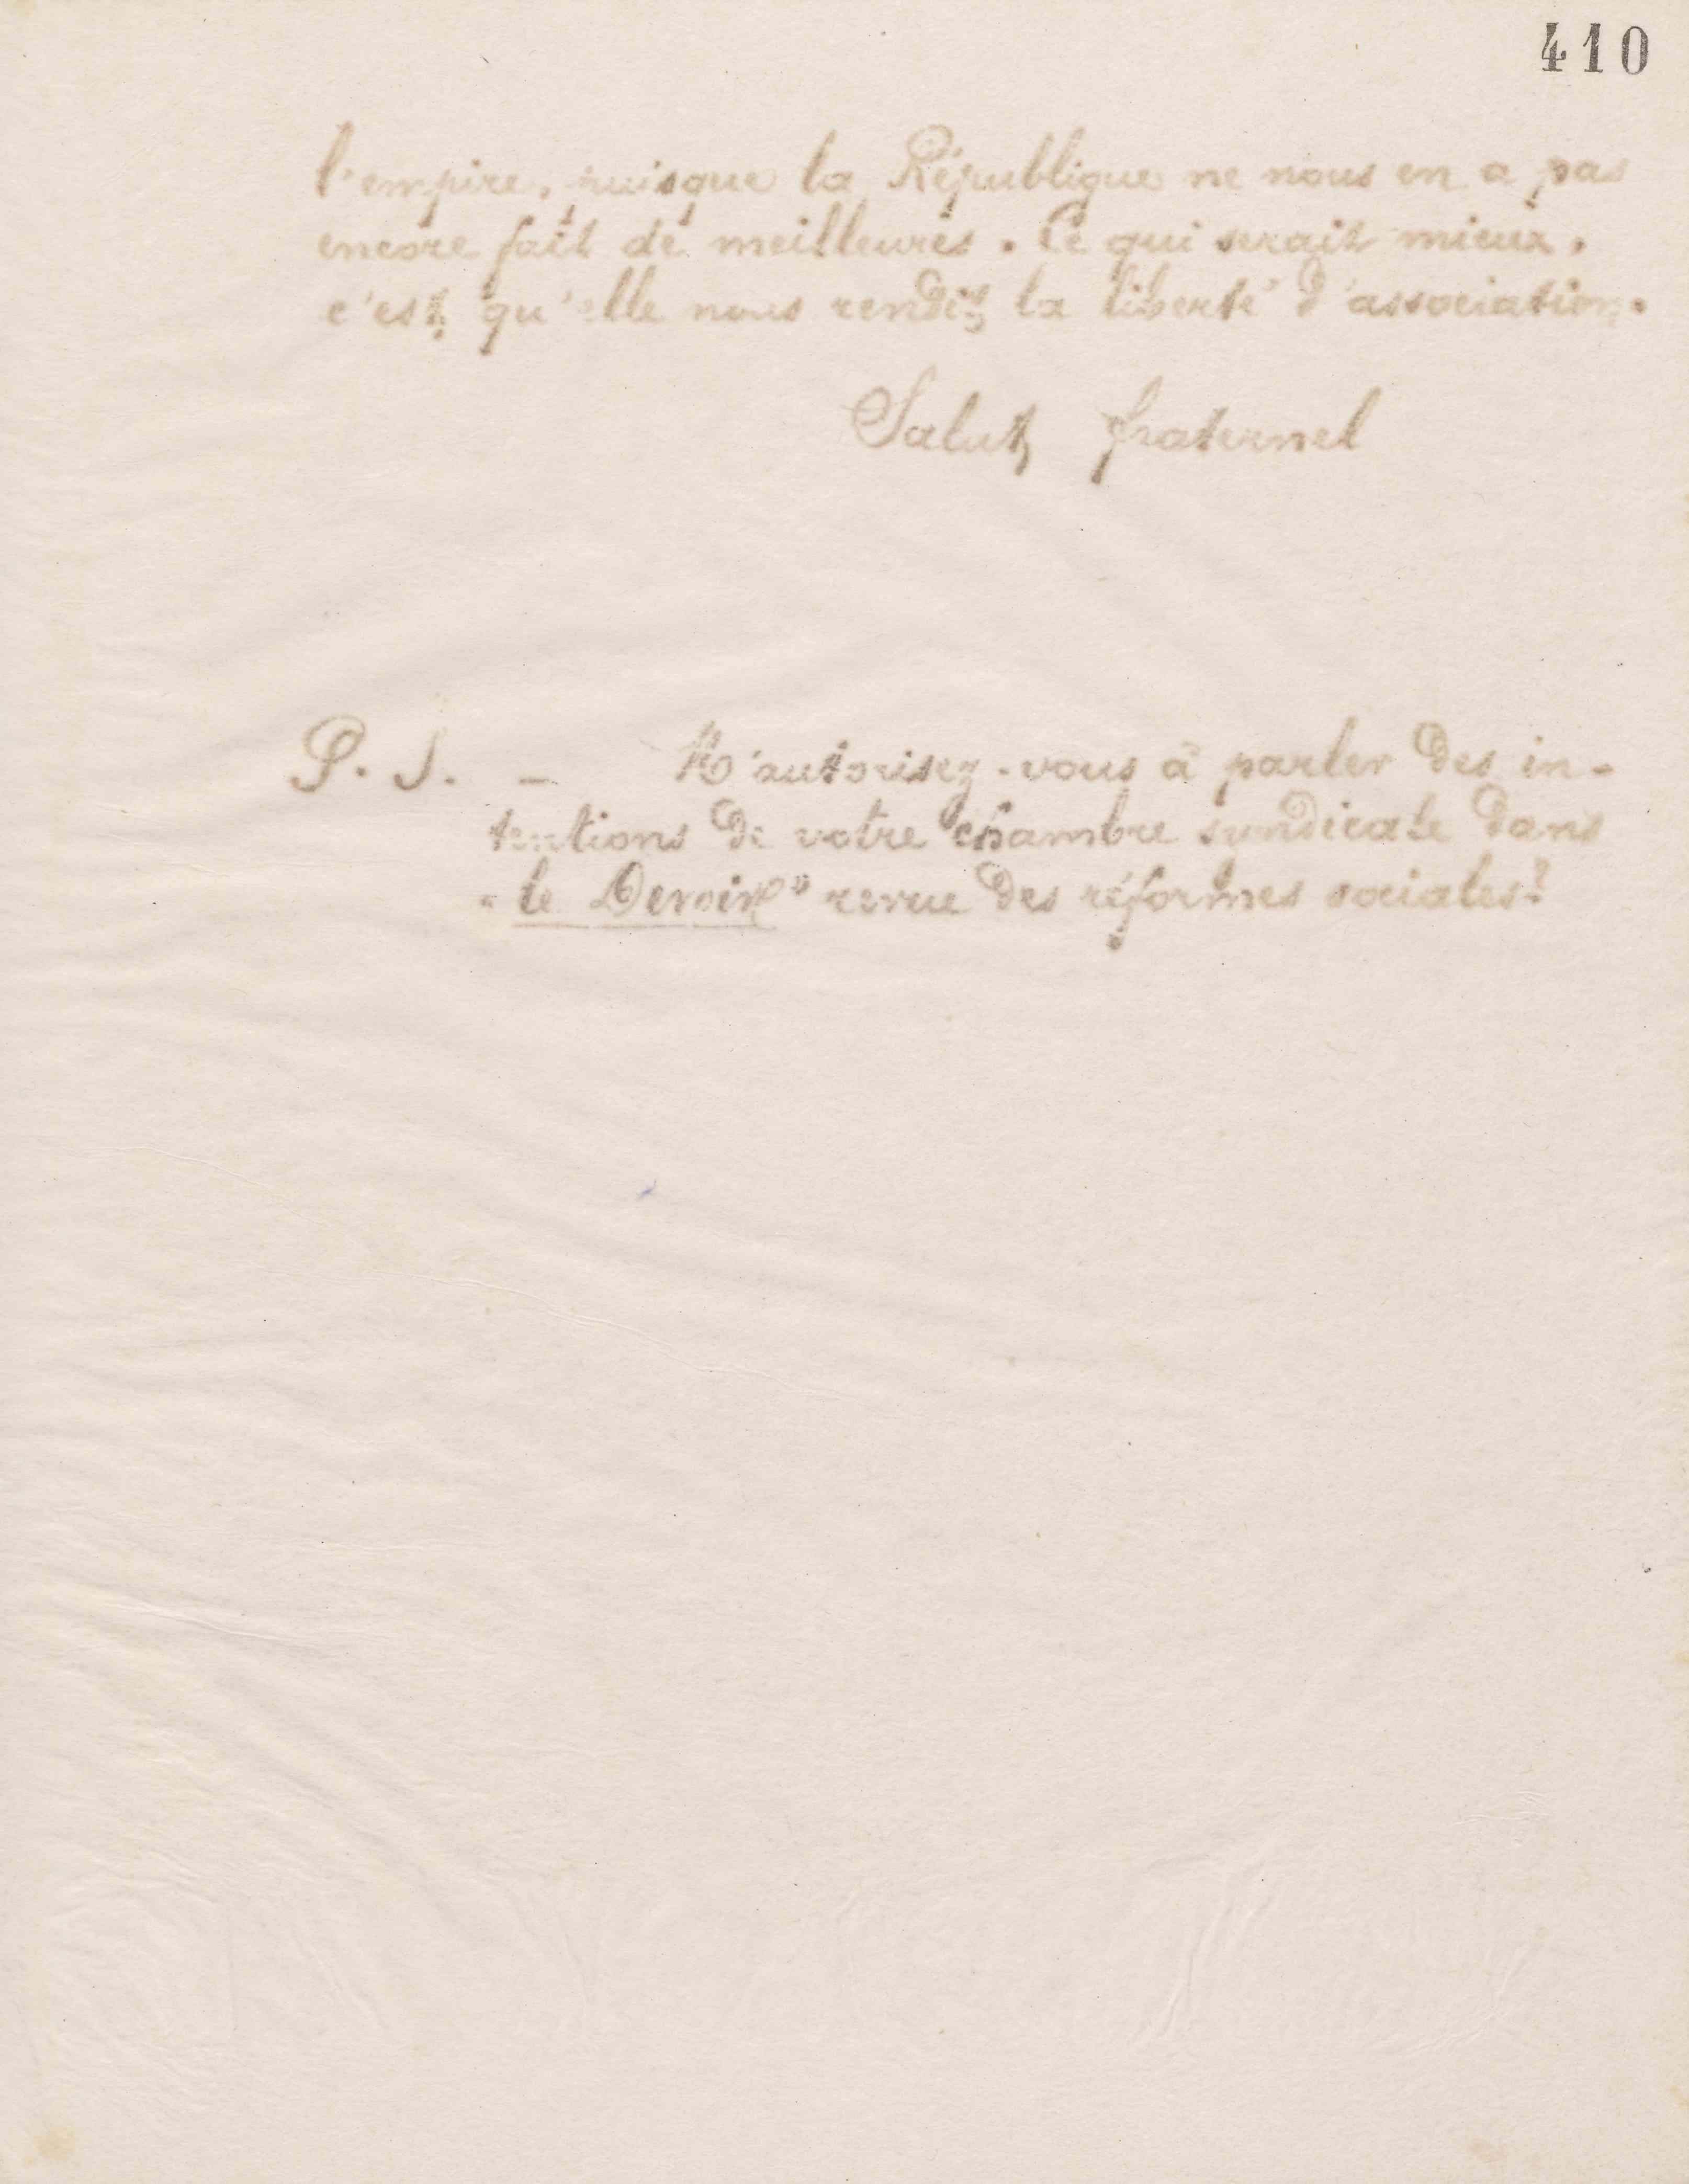 410
l'empire, puisque la République ne nous en a pas
encore fait de meilleures. Ce qui serait mieux,
c'est qu'elle nous rendit la liberté d'association.
Salut fraternel
P. S. — M'autorisez-vous à parler des in-
tentions de votre chambre syndicale dans
"le Devoir" revue des réformes sociales?